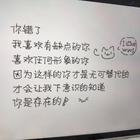 你错了
我喜欢有缺点的你
喜欢任何形象的你
因为这样的你才是无可替代的
才会让我下意识的知道
你是存在的